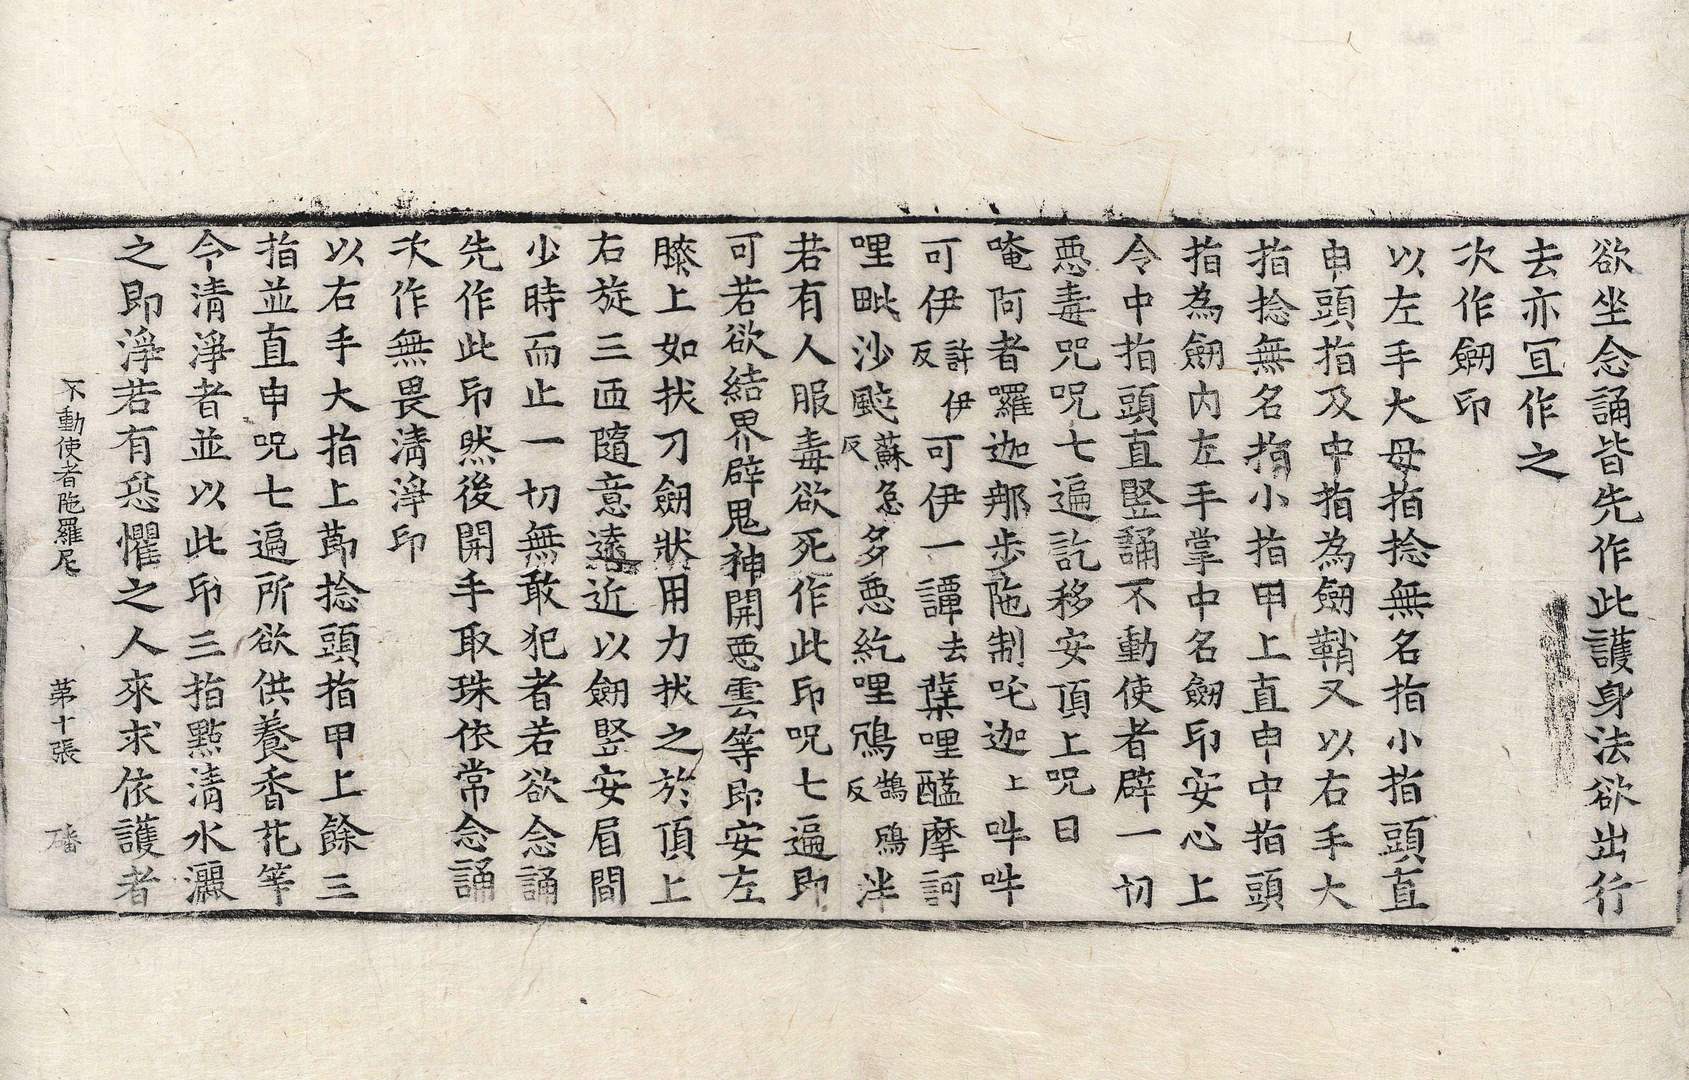 欲坐念誦皆先作此護身法欲出行
去亦冝作之
次作劒印
以左手大母指捻無名指小指頭直
申頭指及中指為劒鞘又以右手大
指捻無名指小指甲上直申中指頭
指為劒内左手掌中名劒印安心上
令中指頭直竪誦不動使者辟一切
惡毒咒咒七遍訖移安頂上咒曰
唵阿者羅迦那步陁制吒迦上吽吽
可伊許伊反可伊一譚去蘖哩醯摩訶
哩毗沙颰蘇急反多惡紇哩鴉鵠鴉反泮
若有人服毒欲死作此印咒七遍即
可若欲結界辟鬼神開惡雲等即安左
膝上如拔刀劒狀用力拔之於頂上
右旋三帀隨意遠近以劒竪安眉間
少時而止一切無敢犯者若欲念誦
先作此印然後開手取珠依常念誦
次作無畏清淨印
以右手大指上莭捻頭指甲上餘三
指並直申咒七遍所欲供養香花等
令清淨者並以此印三指㸃清水灑
之即淨若有恐懼之人來求依護者
不動使者陁羅尼　第十張　磻